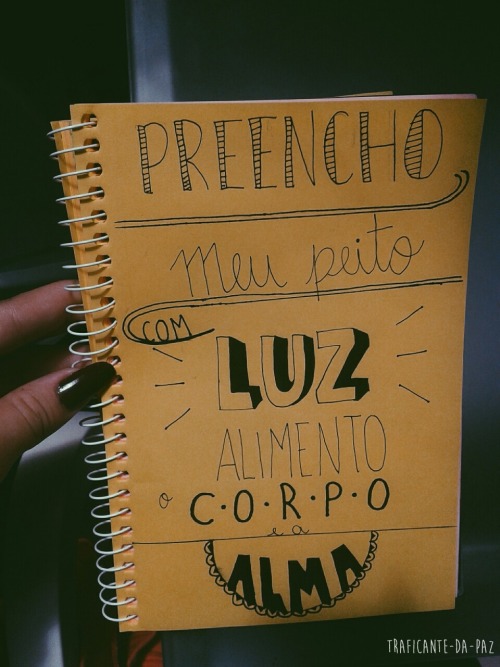 PREENCHO
meu peito
COM
LUZ
ALIMENTO
o C·O·R·P·O
e a
ALMA
TRAFICANTE-DA-PAZ